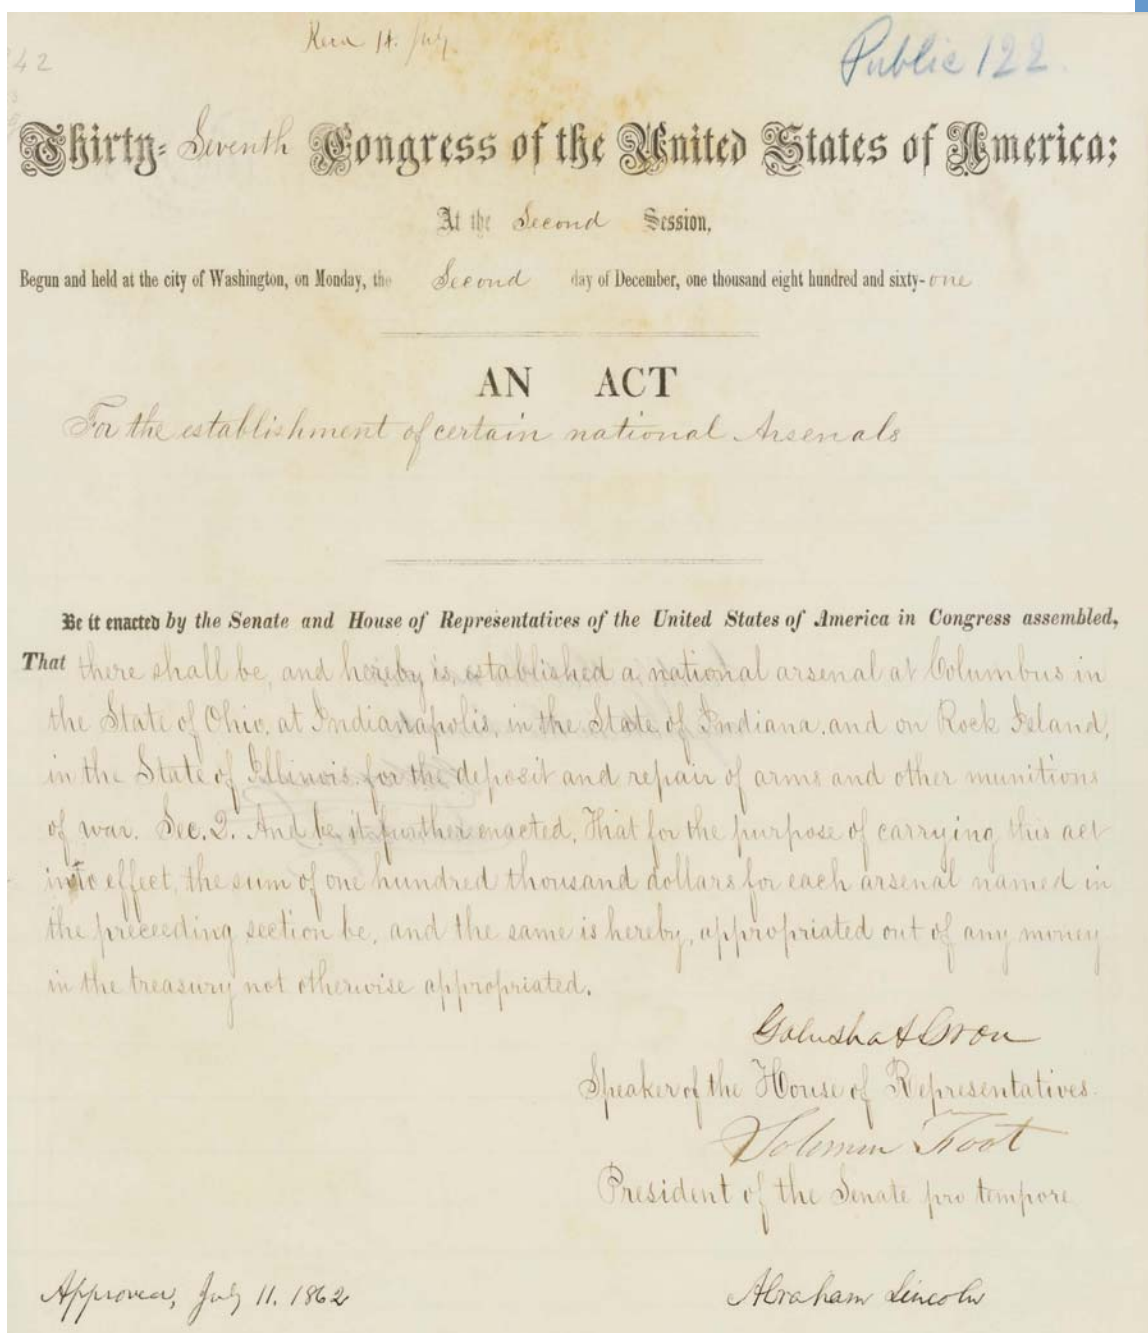 42
Recd 14. July
Public 122.
Thirty-Seventh Congress of the United States of America;
At the Second Session,
Begun and held at the city of Washington, on Monday, the Second day of December, one thousand eight hundred and sixty-one
AN ACT
For the establishment of certain national Arsenals
Be it enacted by the Senate and House of Representatives of the United States of America in Congress assembled,
That there shall be, and hereby is, established a national arsenal at Columbus in
the State of Ohio, at Indianapolis, in the State of Indiana, and on Rock Island,
in the State of Illinois, for the deposit and repair of arms and other munitions
of war. Sec. 2. And be it further enacted, That for the purpose of carrying this act
into effect, the sum of one hundred thousand dollars for each arsenal named in
the preceeding section be, and the same is hereby, appropriated out of any money
in the treasury not otherwise appropriated.
Galusha A Grow
Speaker of the House of Representatives.
Solomon Foot
President of the Senate pro tempore
Approved, July 11. 1862
Abraham Lincoln